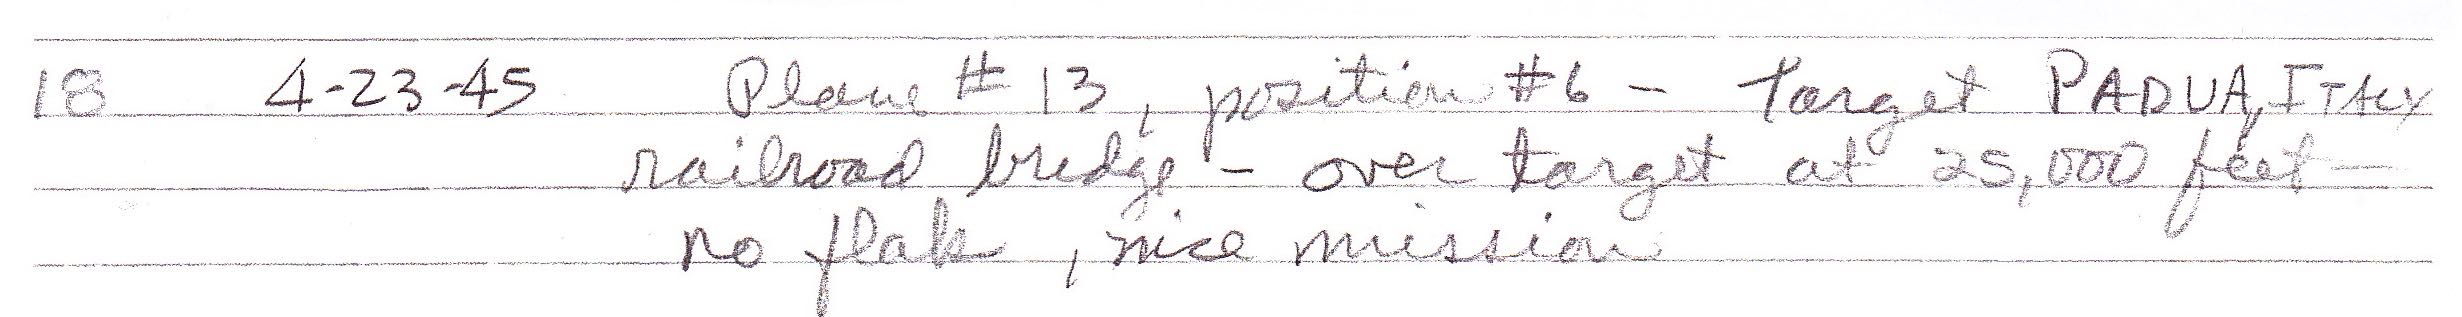 18 4-23-45 Plane # 13, position #6 - Target PADUA, ITALY
railroad bridge - over target at 25,000 feet -
no flak, nice mission